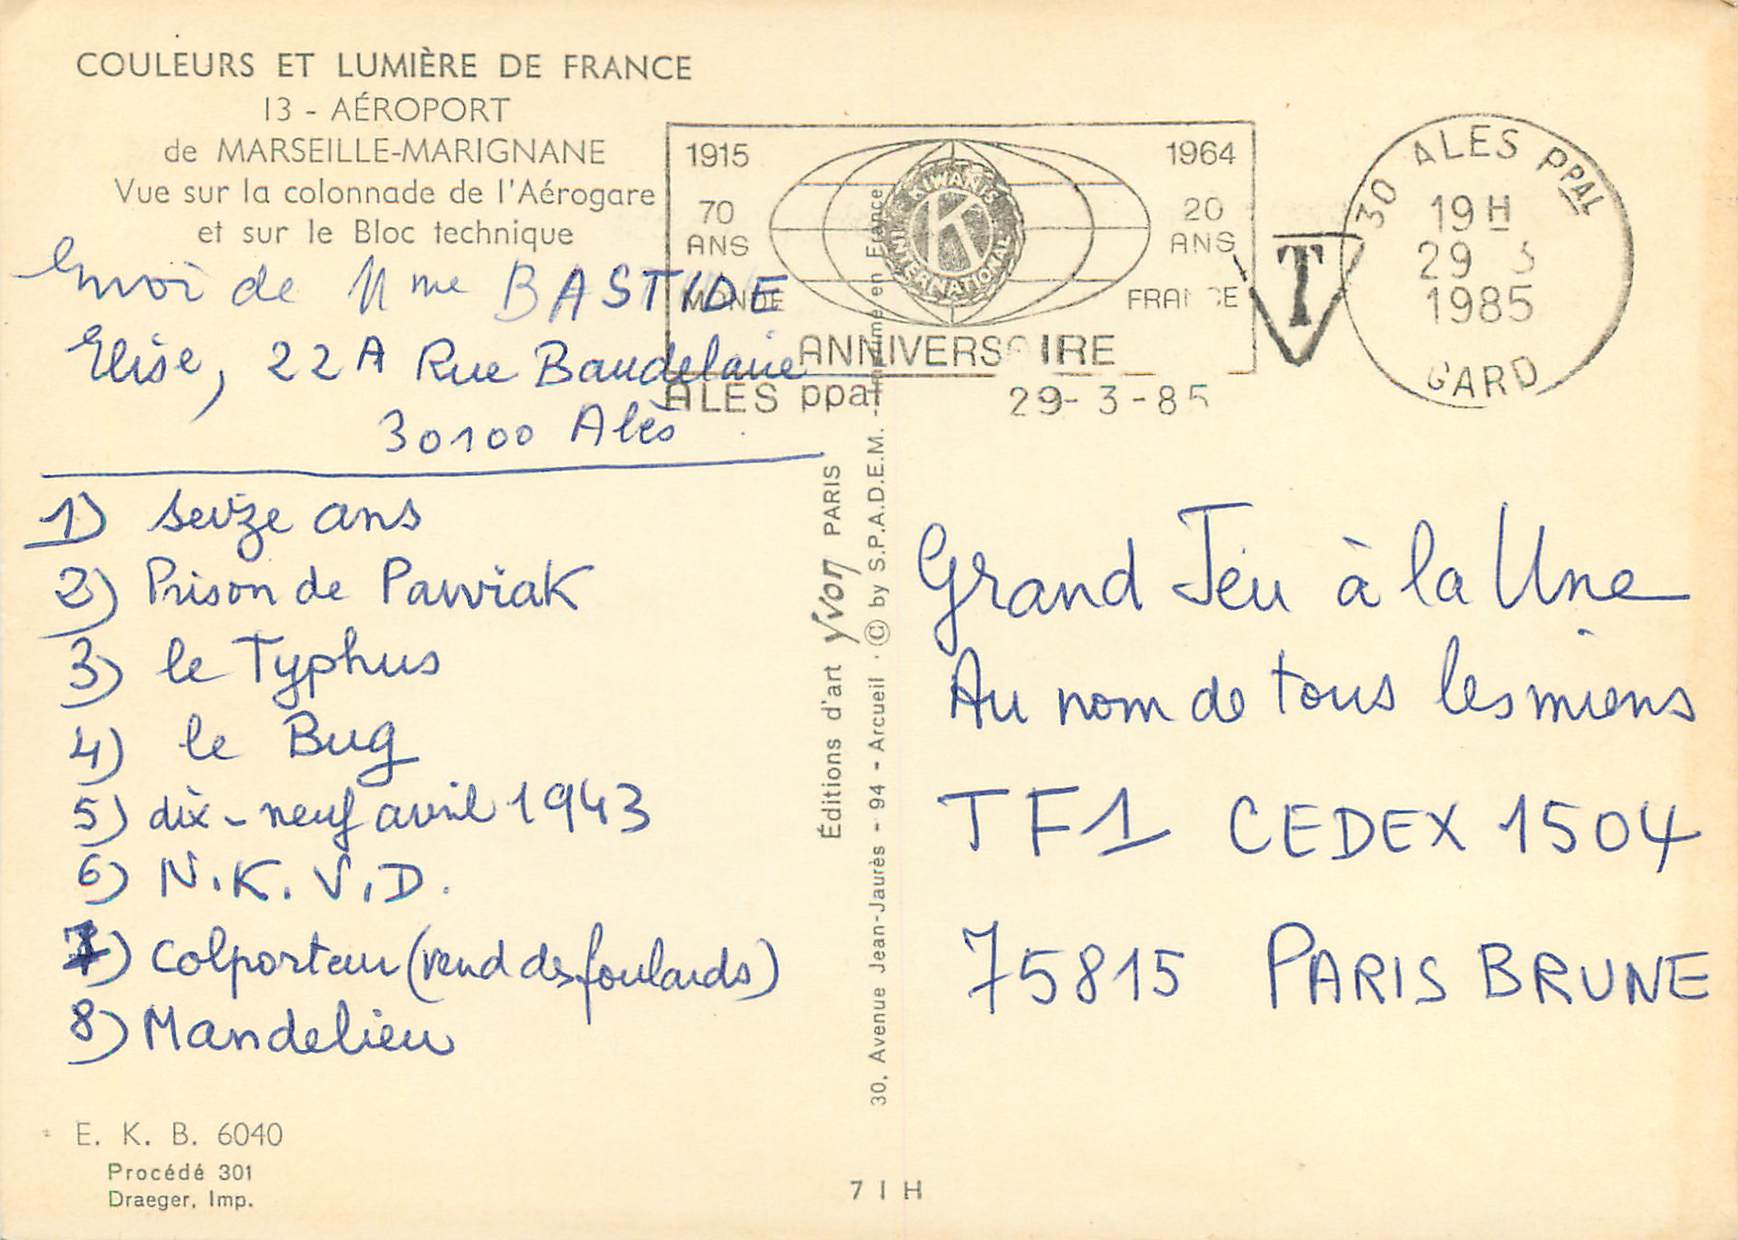 COULEURS ET LUMIÈRE DE FRANCE
13 - AÉROPORT
de MARSEILLE-MARIGNANE
Vue sur la colonnade de l'Aérogare
et sur le Bloc technique
Envoi de Mme BASTIDE
Elise, 22A Rue Baudelaire
30100 Alès
1) seize ans
2) Prison de Pawiak
3) le Typhus
4) le Bug
5) dix-neuf avril 1943
6) N.K.V.D.
7) Colporteur (vend des foulards)
8) Mandelieu
E. K. B. 6040
Procédé 301
Draeger, Imp.
1915
70
ANS
MONDE
KIWANIS
K
INTERNATIONAL
1964
20
ANS
FRANCE
ANNIVERSAIRE
ALES ppal 29-3-85
T
30 ALES PPAL
19H
29 3
1985
GARD
Éditions d'art yvon PARIS
30, Avenue Jean-Jaurès - 94 - Arcueil · © by S.P.A.D.E.M. - Imprimé en France
7 I H
Grand Jeu à la Une
Au nom de tous les miens
TF1 CEDEX 1504
75815 PARIS BRUNE